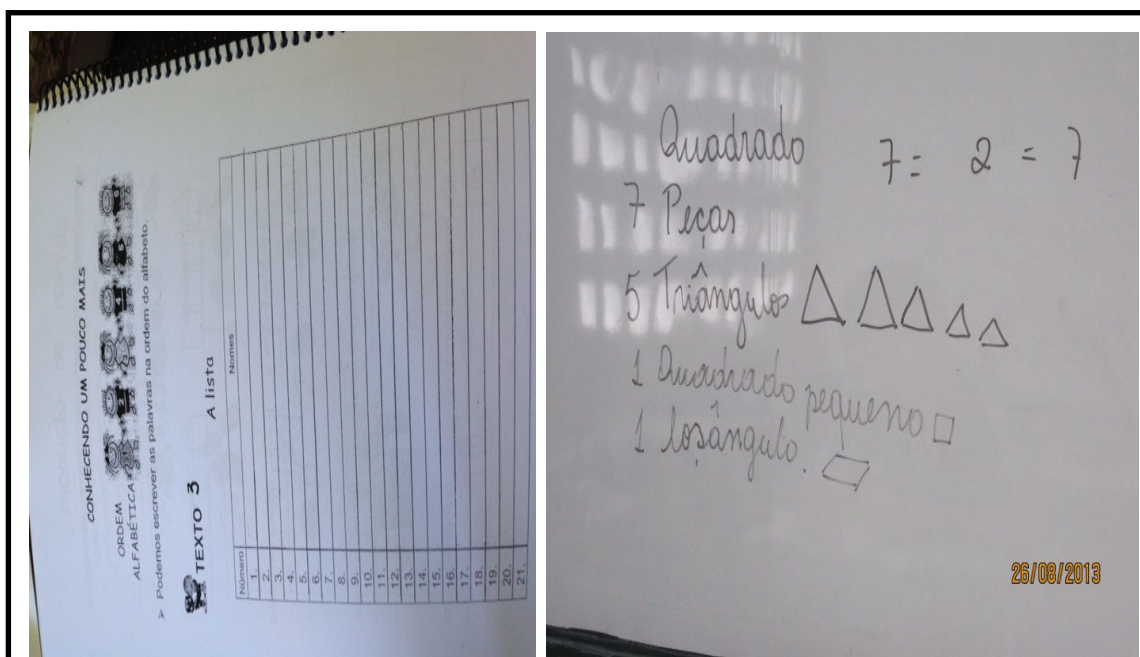 CONHECENDO UM POUCO MAIS
ORDEM
ALFABÉTICA
➢ Podemos escrever as palavras na ordem do alfabeto.
TEXTO 3
A lista
Número Nomes
1.
2.
3.
4.
5.
6.
7.
8.
9.
10.
11.
12.
13.
14.
15.
16.
17.
18.
19.
20.
21.
Quadrado 7 = 2 = 7
7 Peças
5 Triângulos
1 Quadrado pequeno
1 losângulo.
26/08/2013